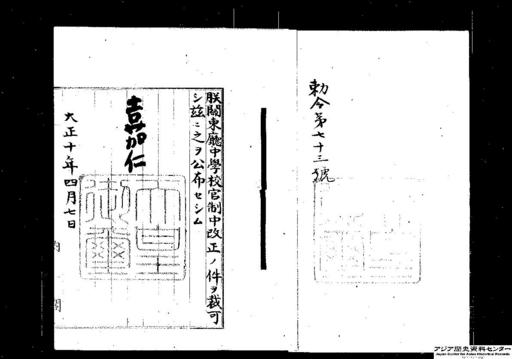 勅令第七十三號
朕關東廳中學校官制中改正ノ件ヲ裁可
シ茲ニ之ヲ公布セシム
嘉仁
天皇御璽
大正十年四月七日
内閣
アジア歴史資料センター
Japan Center for Asian Historical Records